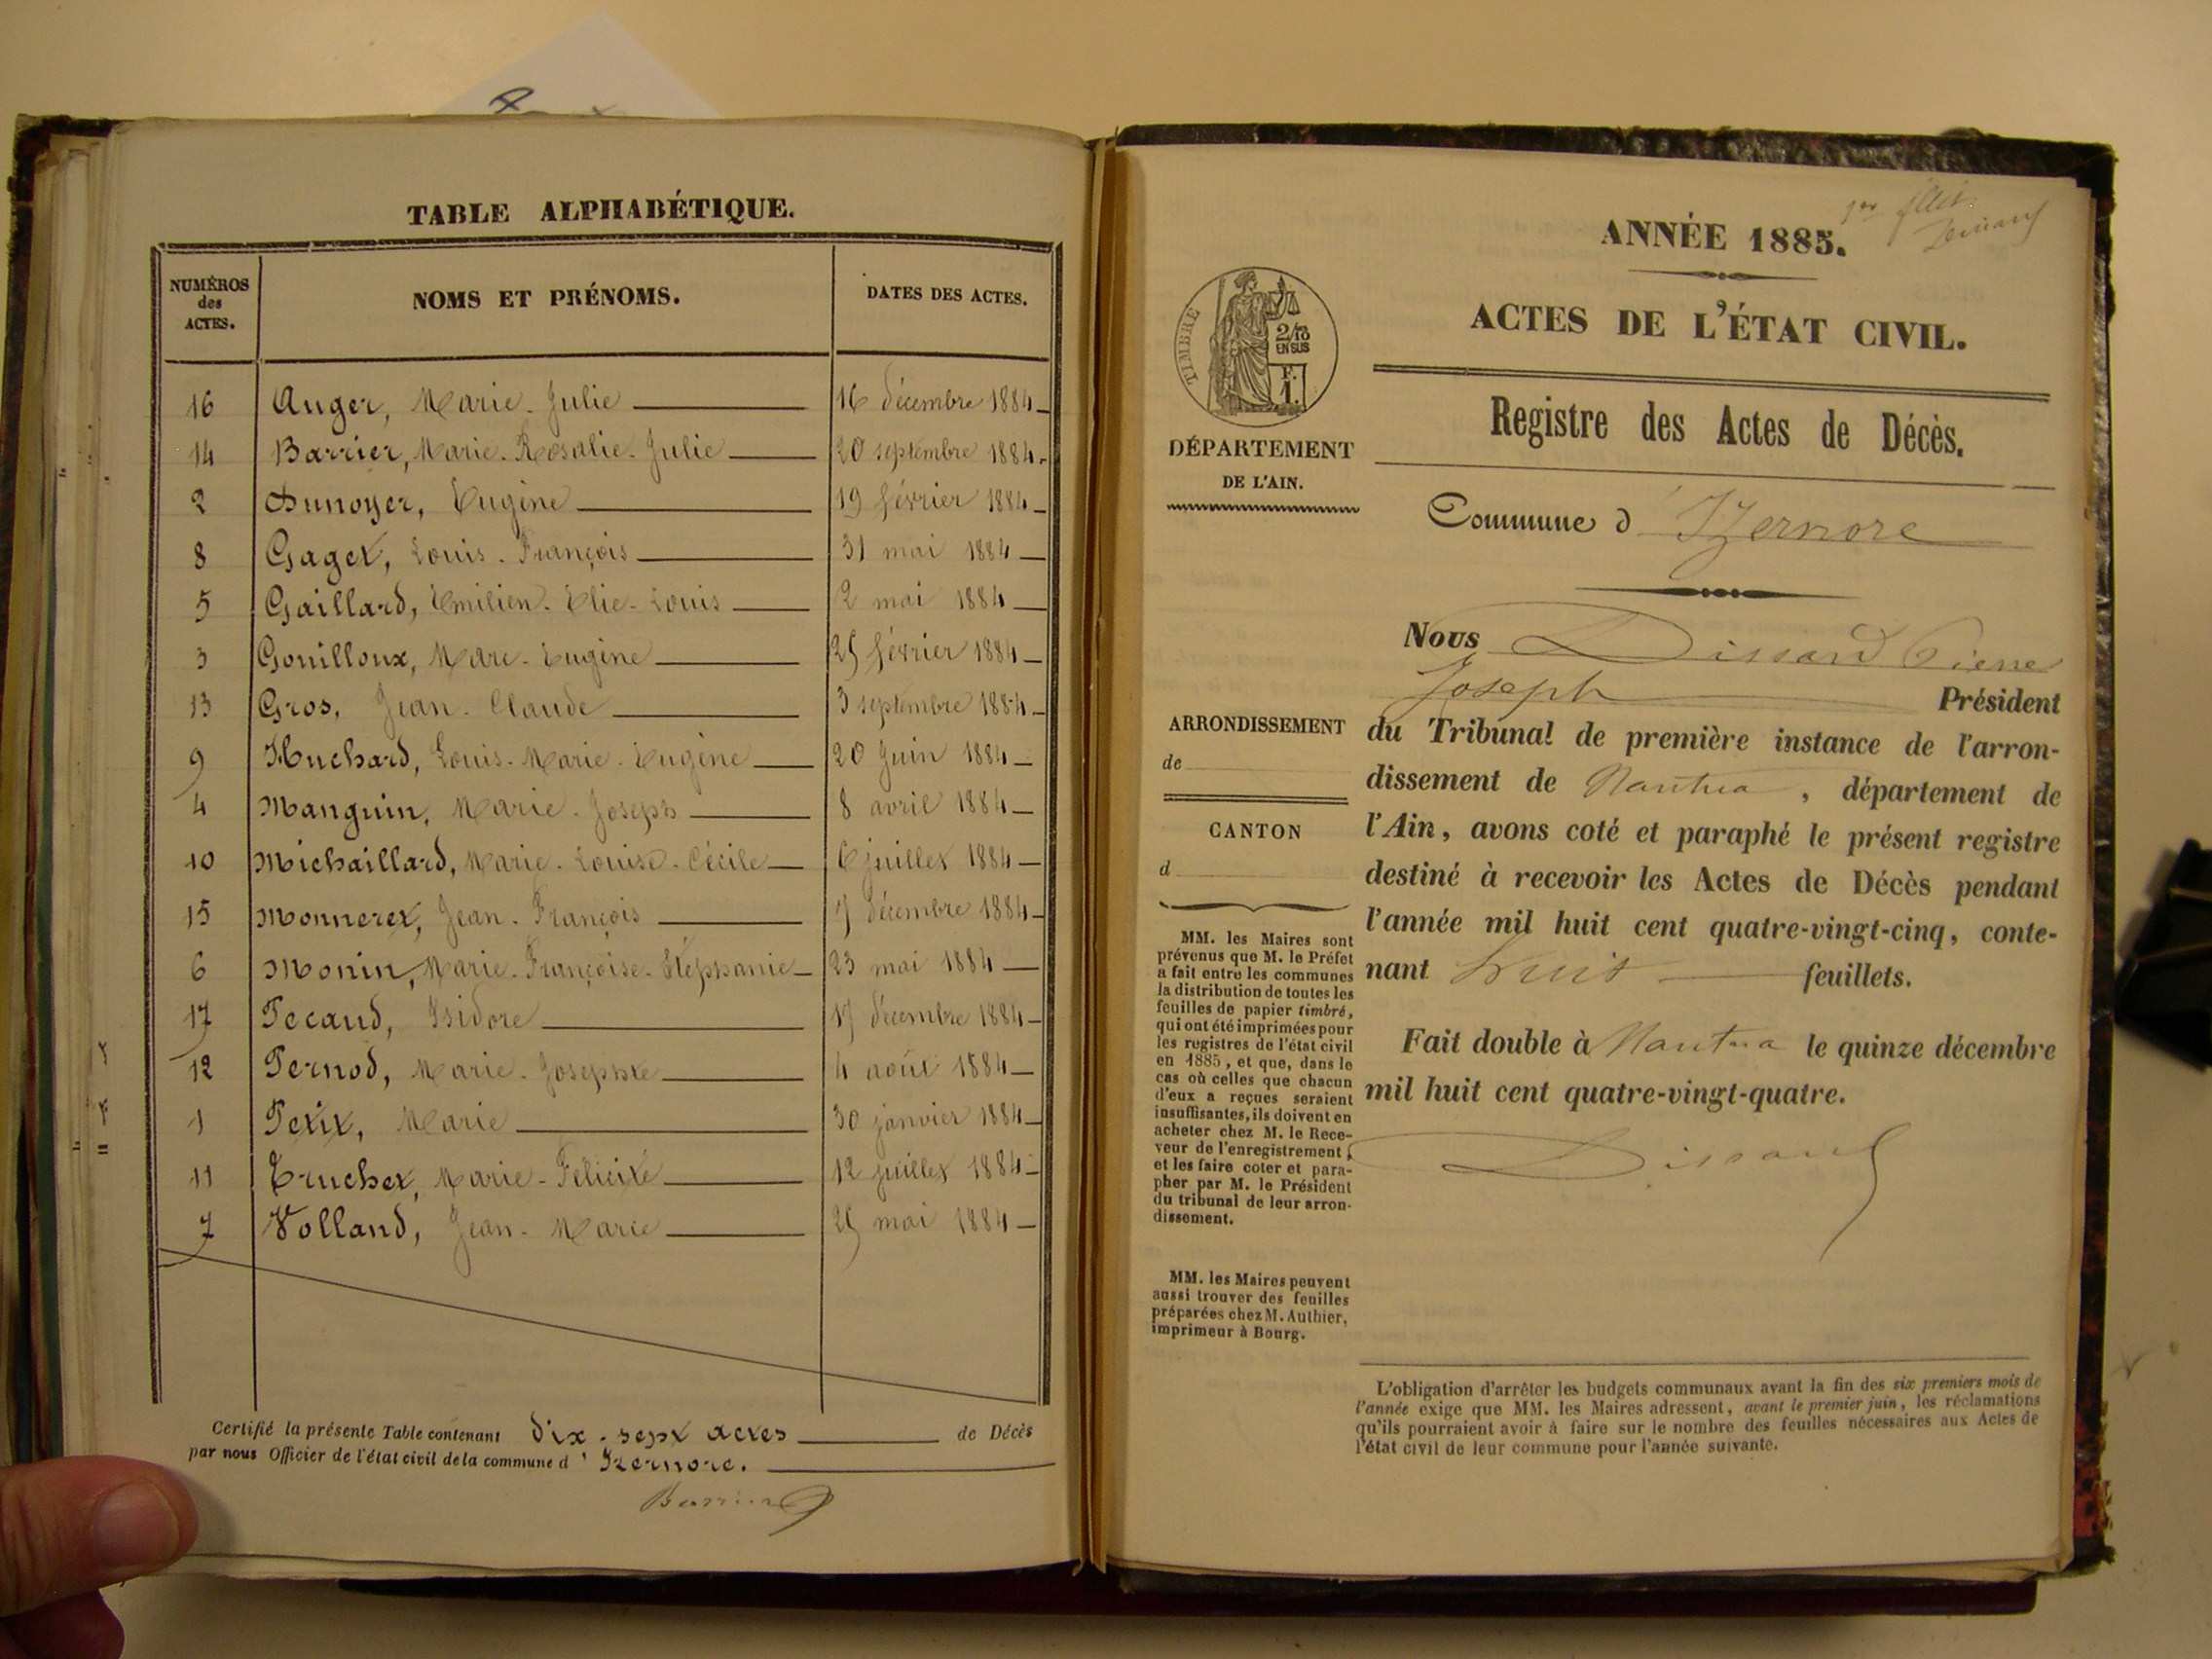 TABLE ALPHABÉTIQUE.
NUMÉROS des ACTES. NOMS ET PRÉNOMS. DATES DES ACTES.
16 Auger, Marie-Julie 16 décembre 1884
14 Barrier, Marie-Rosalie-Julie 20 septembre 1884
2 Dunoyer, Eugène 19 février 1884
8 Gaget, Louis-François 31 mai 1884
5 Gaillard, Emilien-Elie-Louis 2 mai 1884
3 Gouilloux, Marc-Eugène 25 février 1884
13 Gros, Jean-Claude 3 septembre 1884
9 Huchard, Louis-Marie-Eugène 20 Juin 1884
4 Manguin, Marie-Joseph 8 avril 1884
10 Michaillard, Marie-Louise-Cécile 6 juillet 1884
15 Monneret, Jean-François 7 décembre 1884
6 Monin, Marie-Françoise-Stéphanie 23 mai 1884
17 Pecaud, Isidore 17 décembre 1884
12 Pernod, Marie-Josephte 4 août 1884
1 Petit, Marie 30 janvier 1884
11 Truchet, Marie-Félicité 12 juillet 1884
7 Volland, Jean-Marie 25 mai 1884
Certifié la présente Table contenant dix-sept actes de Décès
par nous Officier de l'état civil de la commune d'Izernore.
Barrier
ANNÉE 1885.
ACTES DE L'ÉTAT CIVIL.
TIMBRE
2/10
EN SUS
F.
1.
DÉPARTEMENT
DE L'AIN.
Registre des Actes de Décès.
Commune d'Izernore
Nous Dissard Pierre
Joseph Président
du Tribunal de première instance de l'arron-
dissement de Nantua, département de
l'Ain, avons coté et paraphé le présent registre
destiné à recevoir les Actes de Décès pendant
l'année mil huit cent quatre-vingt-cinq, conte-
nant huit feuillets.
Fait double à Nantua le quinze décembre
mil huit cent quatre-vingt-quatre.
Dissard
ARRONDISSEMENT
de
CANTON
d
MM. les Maires sont
prévenus que M. le Préfet
a fait entre les communes
la distribution de toutes les
feuilles de papier timbré,
qui ont été imprimées pour
les registres de l'état civil
en 1885, et que, dans le
cas où celles que chacun
d'eux a reçues seraient
insuffisantes, ils doivent en
acheter chez M. le Rece-
veur de l'enregistrement,
et les faire coter et para-
pher par M. le Président
du tribunal de leur arron-
dissement.
MM. les Maires peuvent
aussi trouver des feuilles
préparées chez M. Authier,
imprimeur à Bourg.
L'obligation d'arrêter les budgets communaux avant la fin des six premiers mois de
l'année exige que MM. les Maires adressent, avant le premier juin, les réclamations
qu'ils pourraient avoir à faire sur le nombre des feuilles nécessaires aux Actes de
l'état civil de leur commune pour l'année suivante.